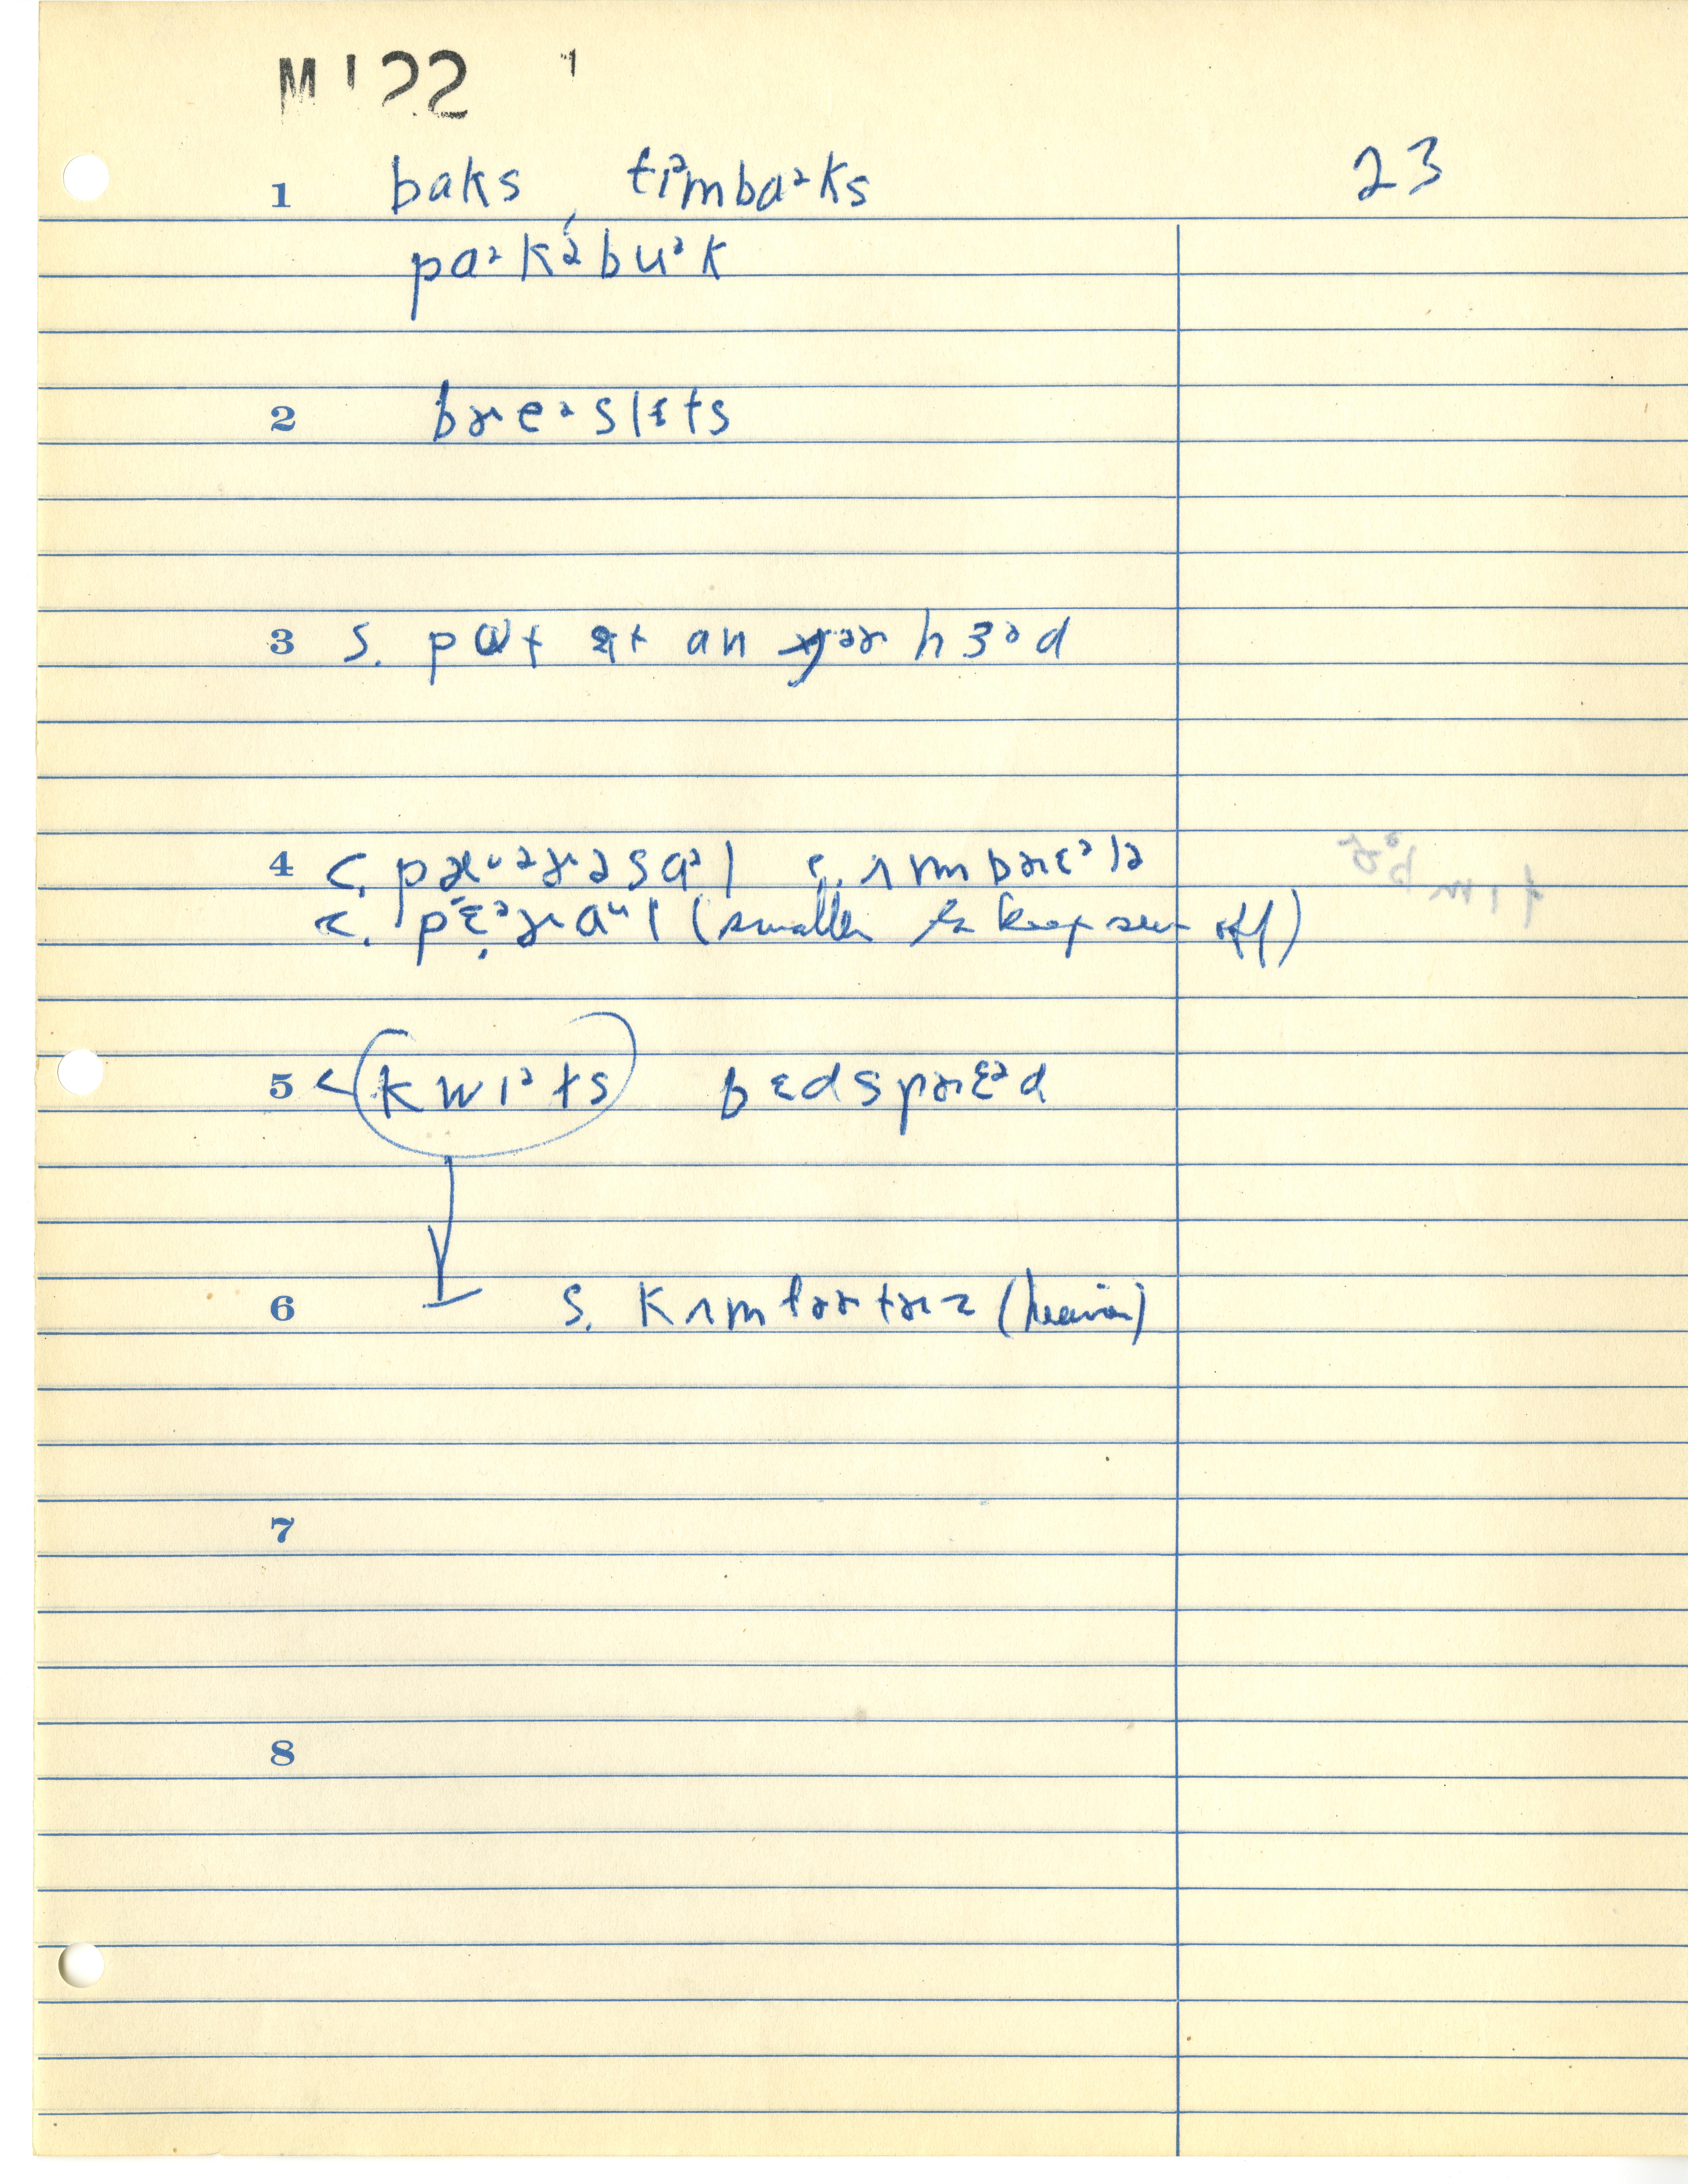 M122 1
23
1 baks, tiᵊmbaᵊks
paᵊkəbuᵊk
2 bɚeᵊslɛts
3 s. pɑt ɪt an jɚ hɜᵊd
4 c. pærəsɑᵊl c. ʌmbrɛᵊlə
c. pɛᵊrɑᵘl (smaller to keep sun off)
5 < kwɪᵊts bɛdsprɛᵊd
6 s. kʌmfɚtɚz (heavier)
7
8